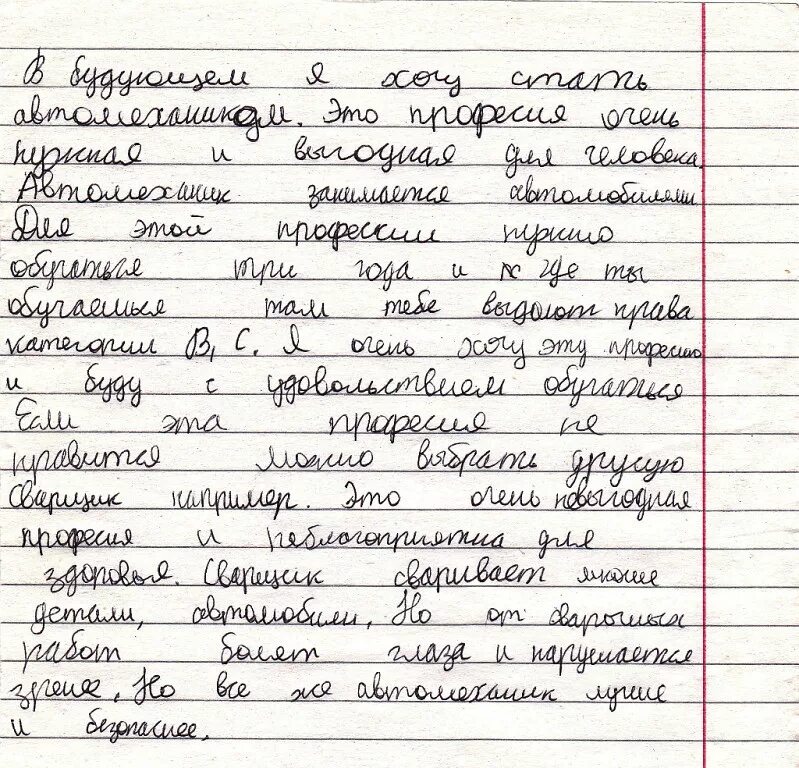 В будующем я хочу стать
автомехаником. Это професия очень
нужная и выгодная для человека.
Автомеханик занимается автомобилями
Для этой професии нужно
обучаться три года и где ты
обучаешься там тебе выдают права
категории В, С. Я очень хочу эту професию
и буду с удовольствием обучаться
Если эта професия не
нравится можно выбрать другую
Сварщик например. Это очень невыгодная
професия и неблогоприятна для
здоровья. Сварщик сваривает
детали, автомобили. Но от сварочных
работ болят глаза и нарушается
зрение. Но все же автомеханик лучше
и безопаснее.